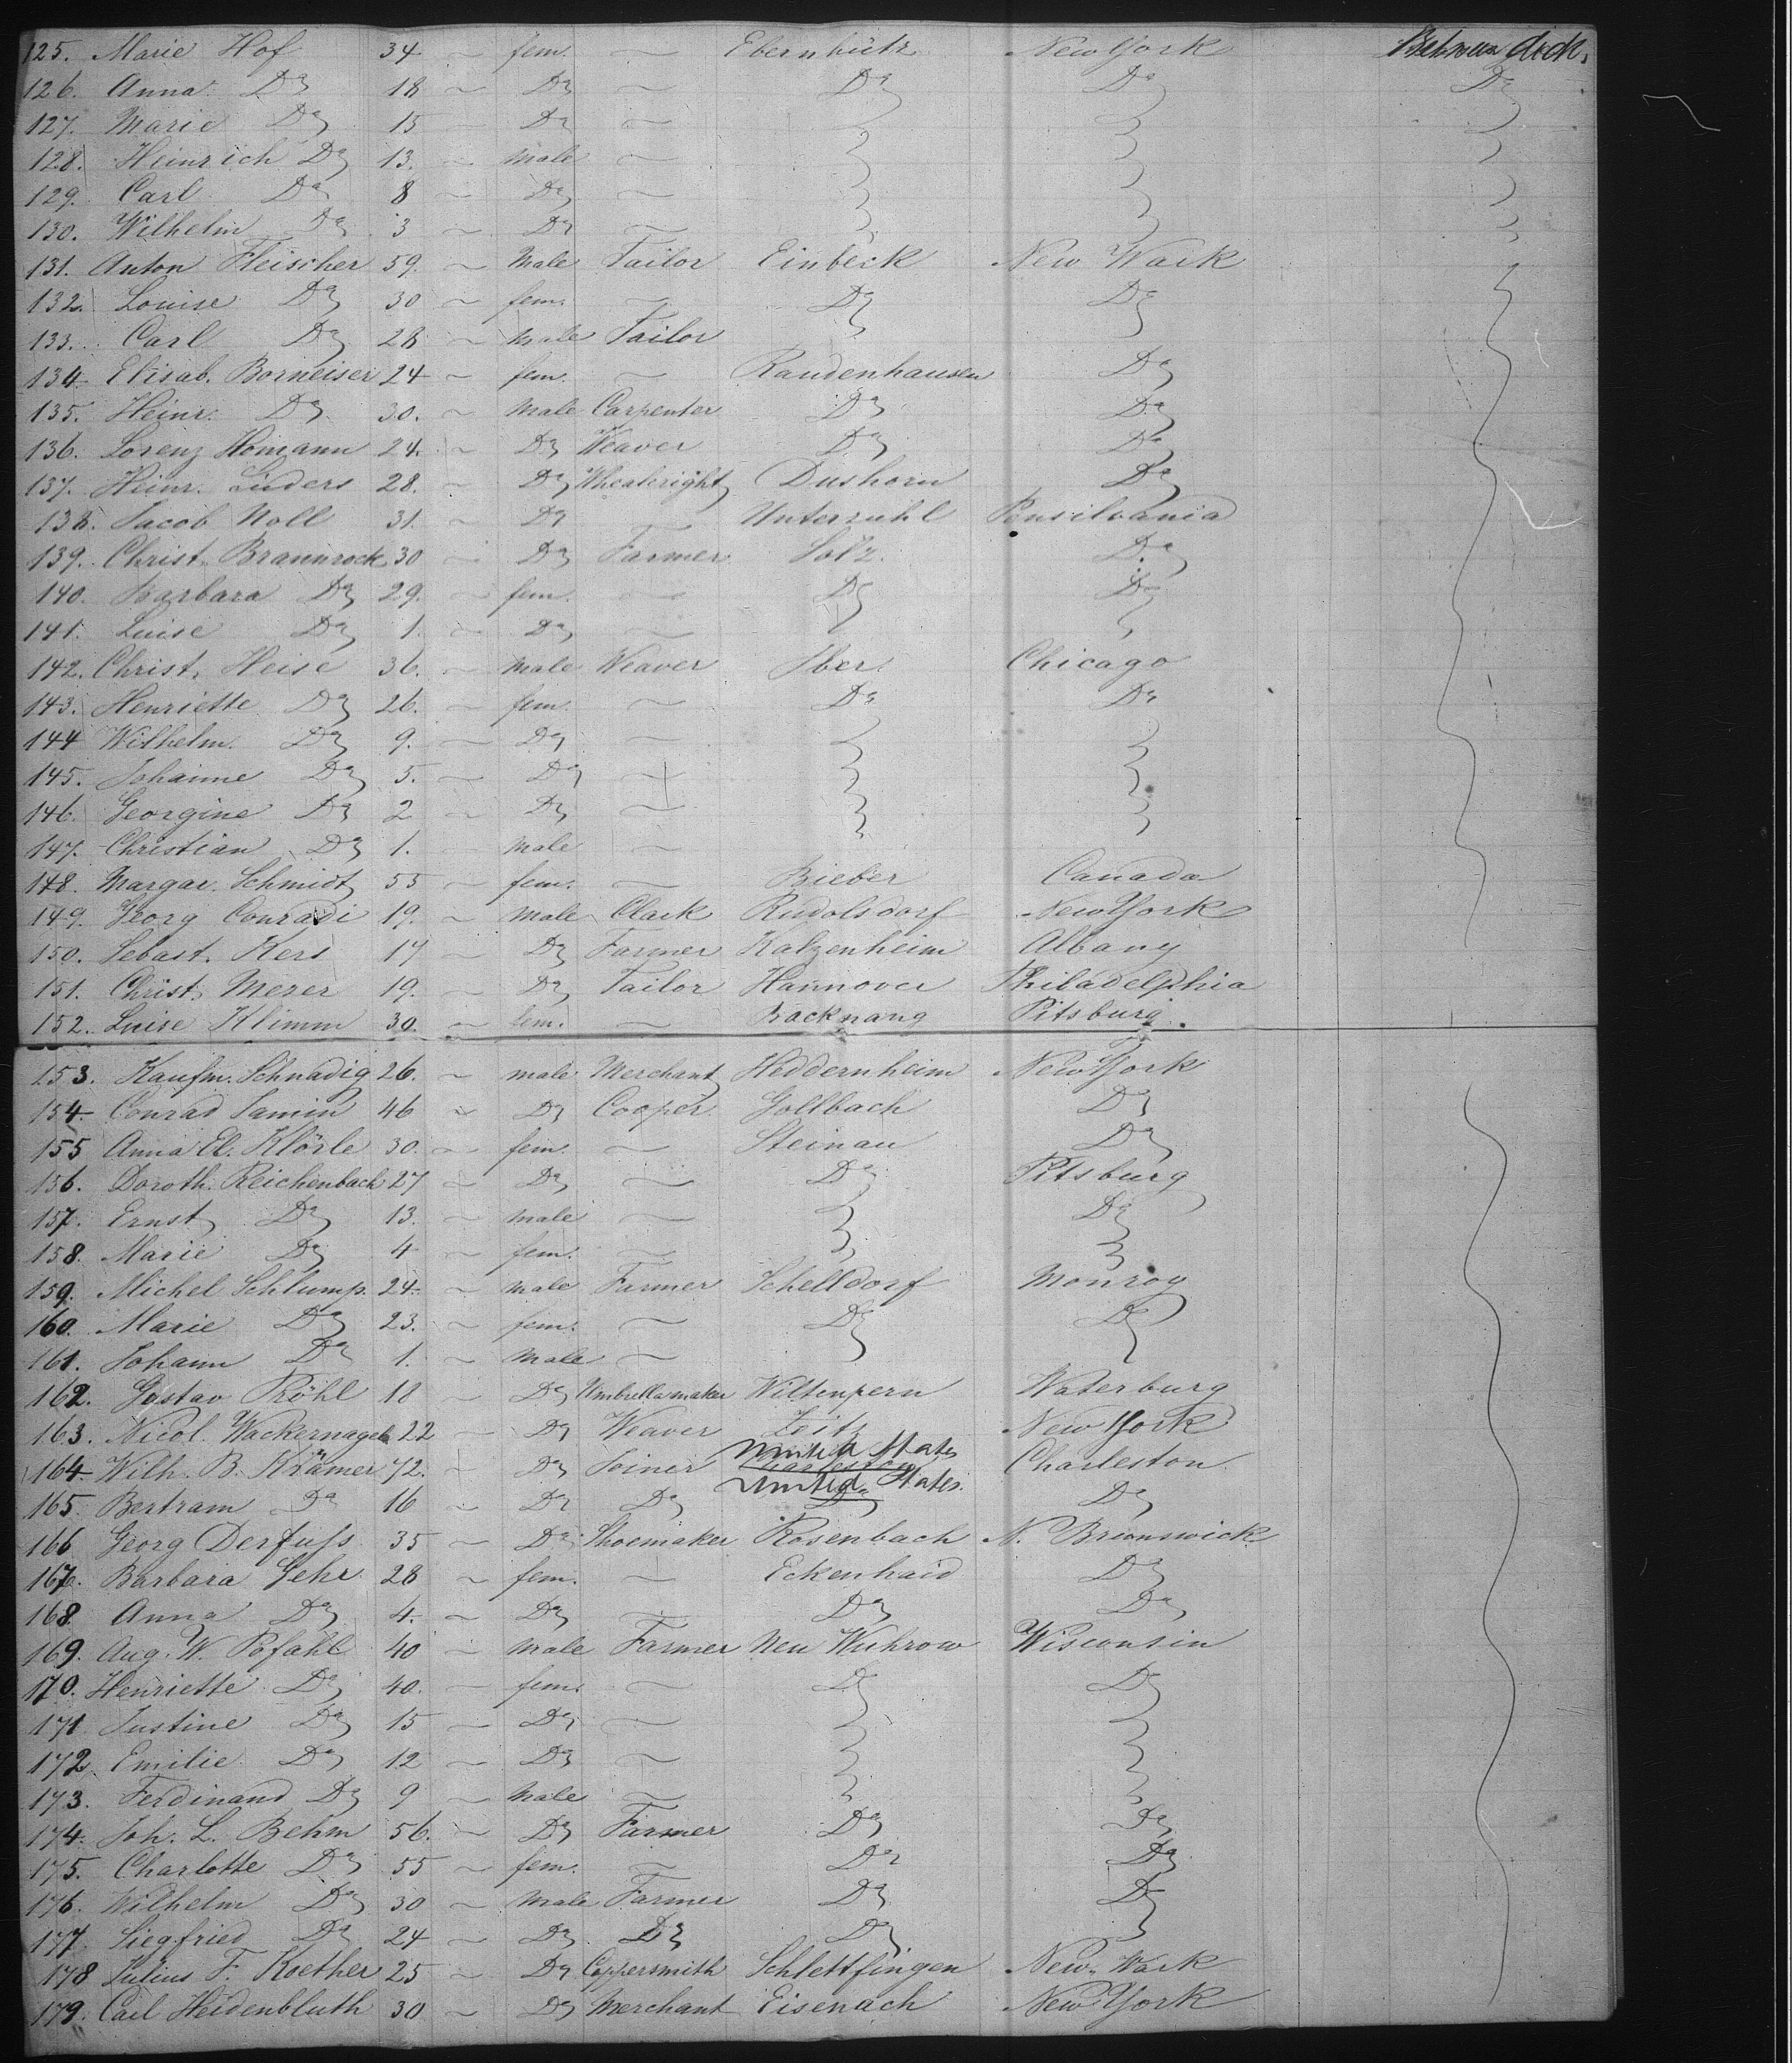 125. Marie Hof 34 ~ fem. ~ Ebernhütz New York Between deck.
126. Anna Do 18 ~ Do ~ Do Do Do
127. Marie Do 15 Do ~
128. Heinrich Do 13. ~ male ~
129. Carl Do 8 ~ Do ~
130. Wilhelm Do 3 ~ Do ~
131. Anton Fleischer 59. ~ Male Tailor Einbeck New Wark
132. Louise Do 30 ~ fem. ~ Do Do
133. Carl Do 28 ~ male Tailor
134. Elisab. Borneiser 24 ~ fem. ~ Raudenhausen Do
135. Heinr. Do 30. ~ male Carpenter Do Do
136. Lorenz Homann 24. ~ Do Weaver Do Do
137. Heinr. Lüders 28. ~ Do Whealeright Dushorn Do
138. Jacob Noll 31. ~ Do ~ Unterzuhl Pensilvania
139. Christ. Braunrock 30 ~ Do Farmer Solz. Do
140. Barbara Do 29. ~ fem. ~ Do Do
141. Luise Do 1. ~ Do ~
142. Christ. Heise 36. ~ male Weaver Iber. Chicago
143. Henriette Do 26. ~ fem. ~ Do Do
144 Wilhelm. Do 9. ~ Do ~
145. Johanne Do 5. ~ Do ~
146. Georgine Do 2 ~ Do ~
147. Christian Do 1. male ~
148. Margar. Schmidt 55 ~ fem. ~ Bieber Canada
149. Georg Conradi 19. ~ male Clark Rudolsdorf New York
150. Sebast. Kers 17 ~ Do Farmer Kalzenheim Albany
151. Christ. Merer 19. ~ Do Tailor Hannover Philadelphia
152. Luise Klimm 30. ~ fem. ~ Backnang Pitsburg.
153. Kaufm. Schnadig 26. ~ male Merchant Heddernheim New York
154. Conrad Jamin 46 ~ Do Cooper Gollbach Do
155 Anna El. Klörle 30. ~ fem. ~ Steinau Do
156. Doroth. Reichenbach 27 ~ Do ~ Do Pitsburg
157. Ernst Do 13. ~ male ~ Do
158. Marie Do 4 ~ fem. ~
159. Michel Schlump. 24. ~ male Farmer Schelldorf Monroy
160. Marie Do 23. ~ fem. ~ Do Do
161. Johann Do 1. ~ male ~
162. Gostav Röhl 18 ~ Do Umbrellamaker Wiltenpern Waterburg
163. Nicol. Wackernagel 22 ~ Do Weaver Zeitz New York
164. Wilh. B. Krämer 42. ~ Do Joiner United States Charleston
165. Bertram Do 16 ~ Do Do United States. Do
166 Georg Derfuss 35 ~ Do Shoemaker Rosenbach N. Brunswick
167. Barbara Gehr 28 ~ fem. ~ Eckenhaid Do
168. Anna Do 4. ~ Do ~ Do Do
169. Aug. W. Pofahl 40 ~ male Farmer Neu Wuhrow Wisconsin
170. Henriette Do 40. ~ fem. ~ Do Do
171 Justine Do 15 ~ Do ~
172. Emilie Do 12 ~ Do ~
173. Ferdinand Do 9 ~ male ~
174. Joh. L. Behm 56. ~ Do Farmer Do Do
175. Charlotte Do 55 ~ fem. ~ Do Do
176. Wilhelm Do 30 ~ male Farmer Do Do
177. Siegfried Do 24 ~ Do Do Do
178 Julius F. Koether 25 ~ Do Coppersmith Schlettfingen New. Wark
179. Carl Heidenbluth 30. ~ Do Merchant Eisenach New York